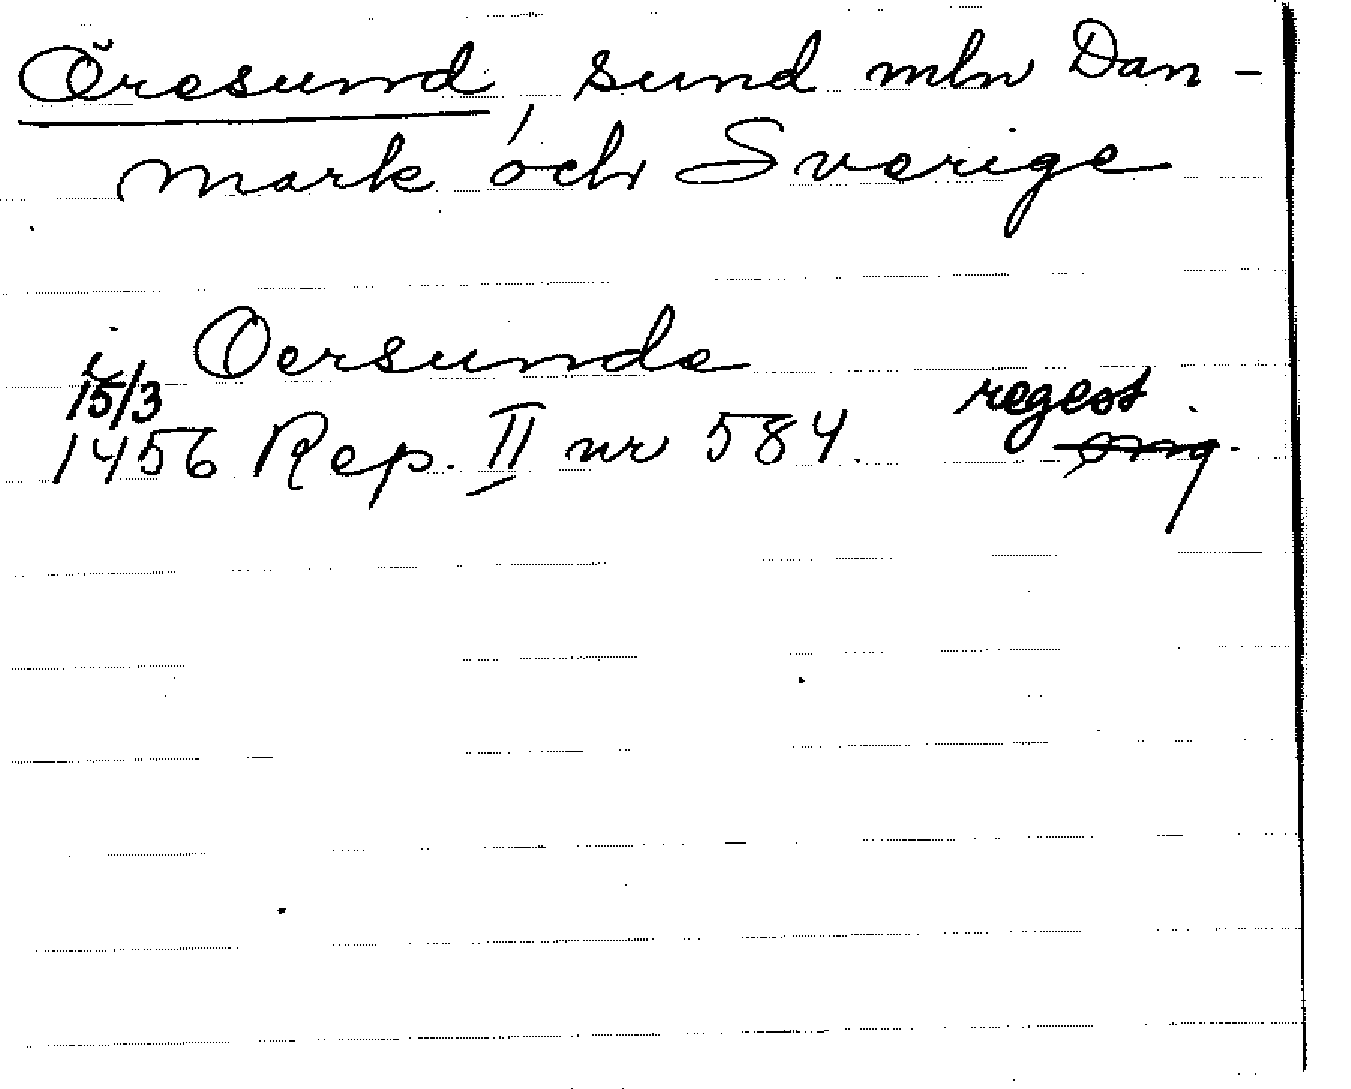 Öresund, sund mln Dan-
mark och Sverige
i Oersunde
15/3
1456 Rep. II nr 584. regest.